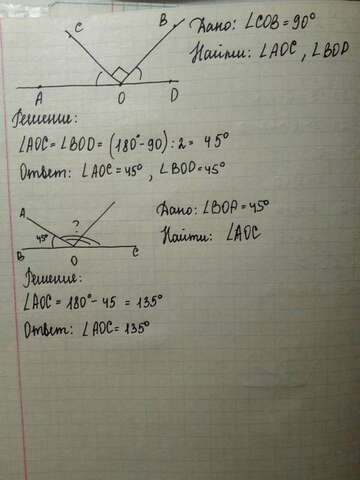 C
B
A
O
D
Дано: ∠COB = 90°
Найти: ∠AOC, ∠BOD
Решение:
∠AOC = ∠BOD = (180° - 90) : 2 = 45°
Ответ: ∠AOC = 45°, ∠BOD = 45°
A
?
45°
B
O
C
Дано: ∠BOA = 45°
Найти: ∠AOC
Решение:
∠AOC = 180° - 45 = 135°
Ответ: ∠AOC = 135°